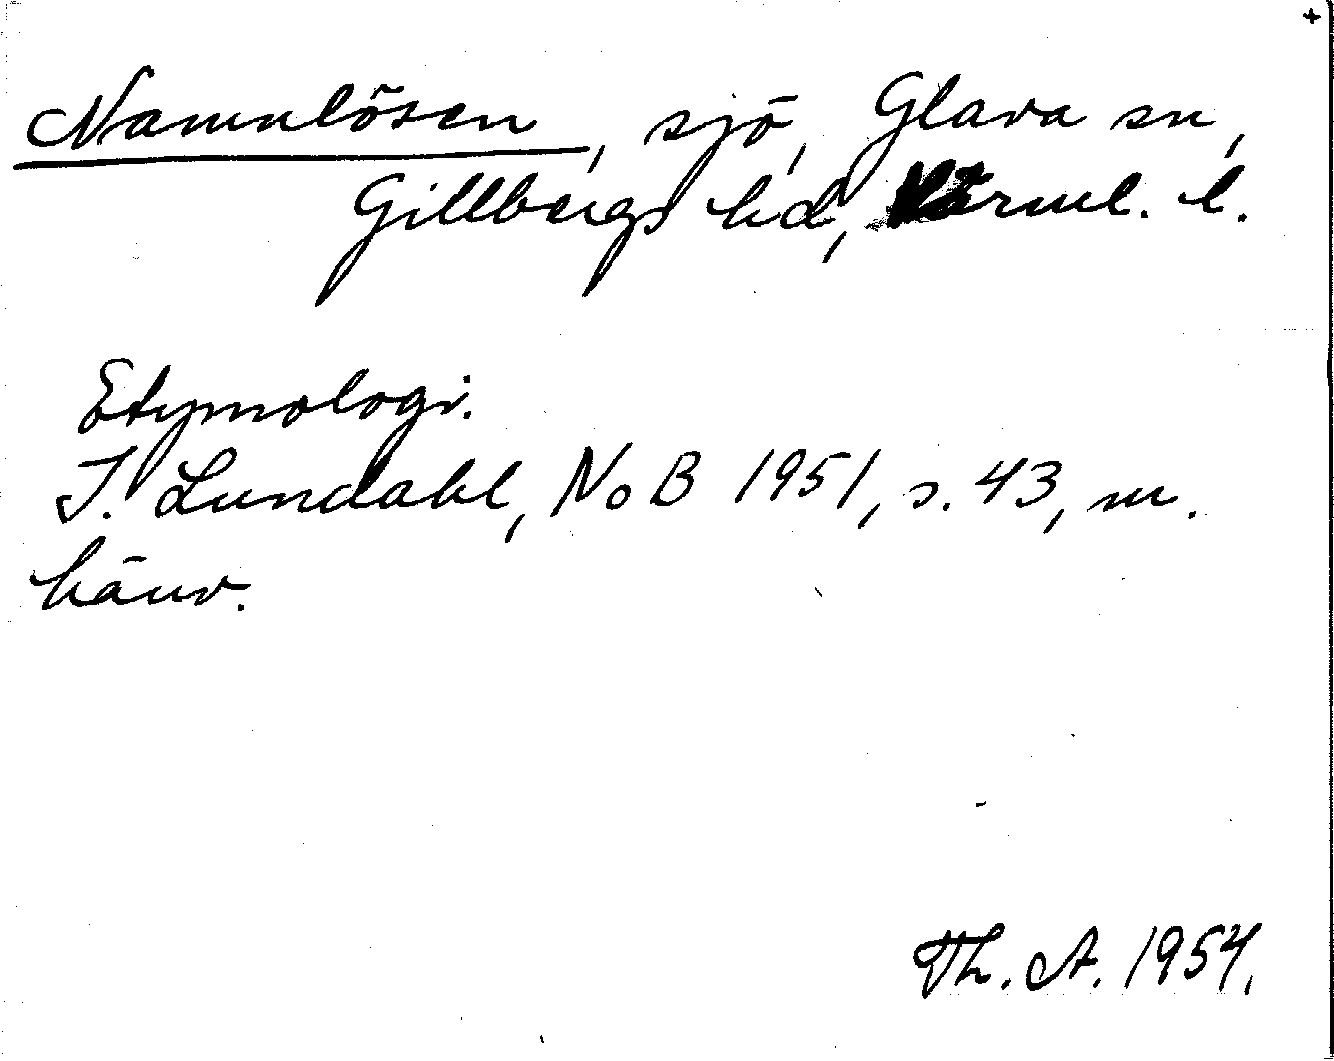 +
Namnlösen, sjö, Glava sn,
Gillbergs hd, Värml. l.
Etymologi.
I. Lundahl, NoB 1951, s. 43, m.
hänv.
Th. A. 1954.